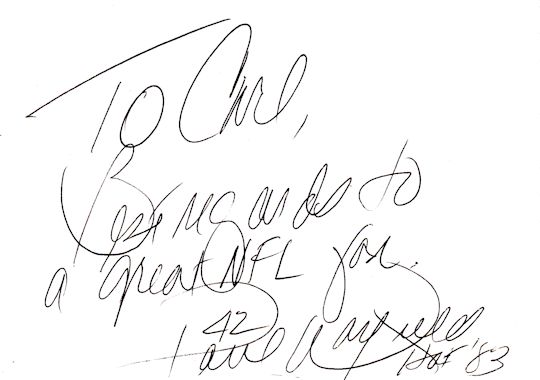 To Carl,
Best regards to
a great NFL fan.
42
Paul Warfield
HOF '83